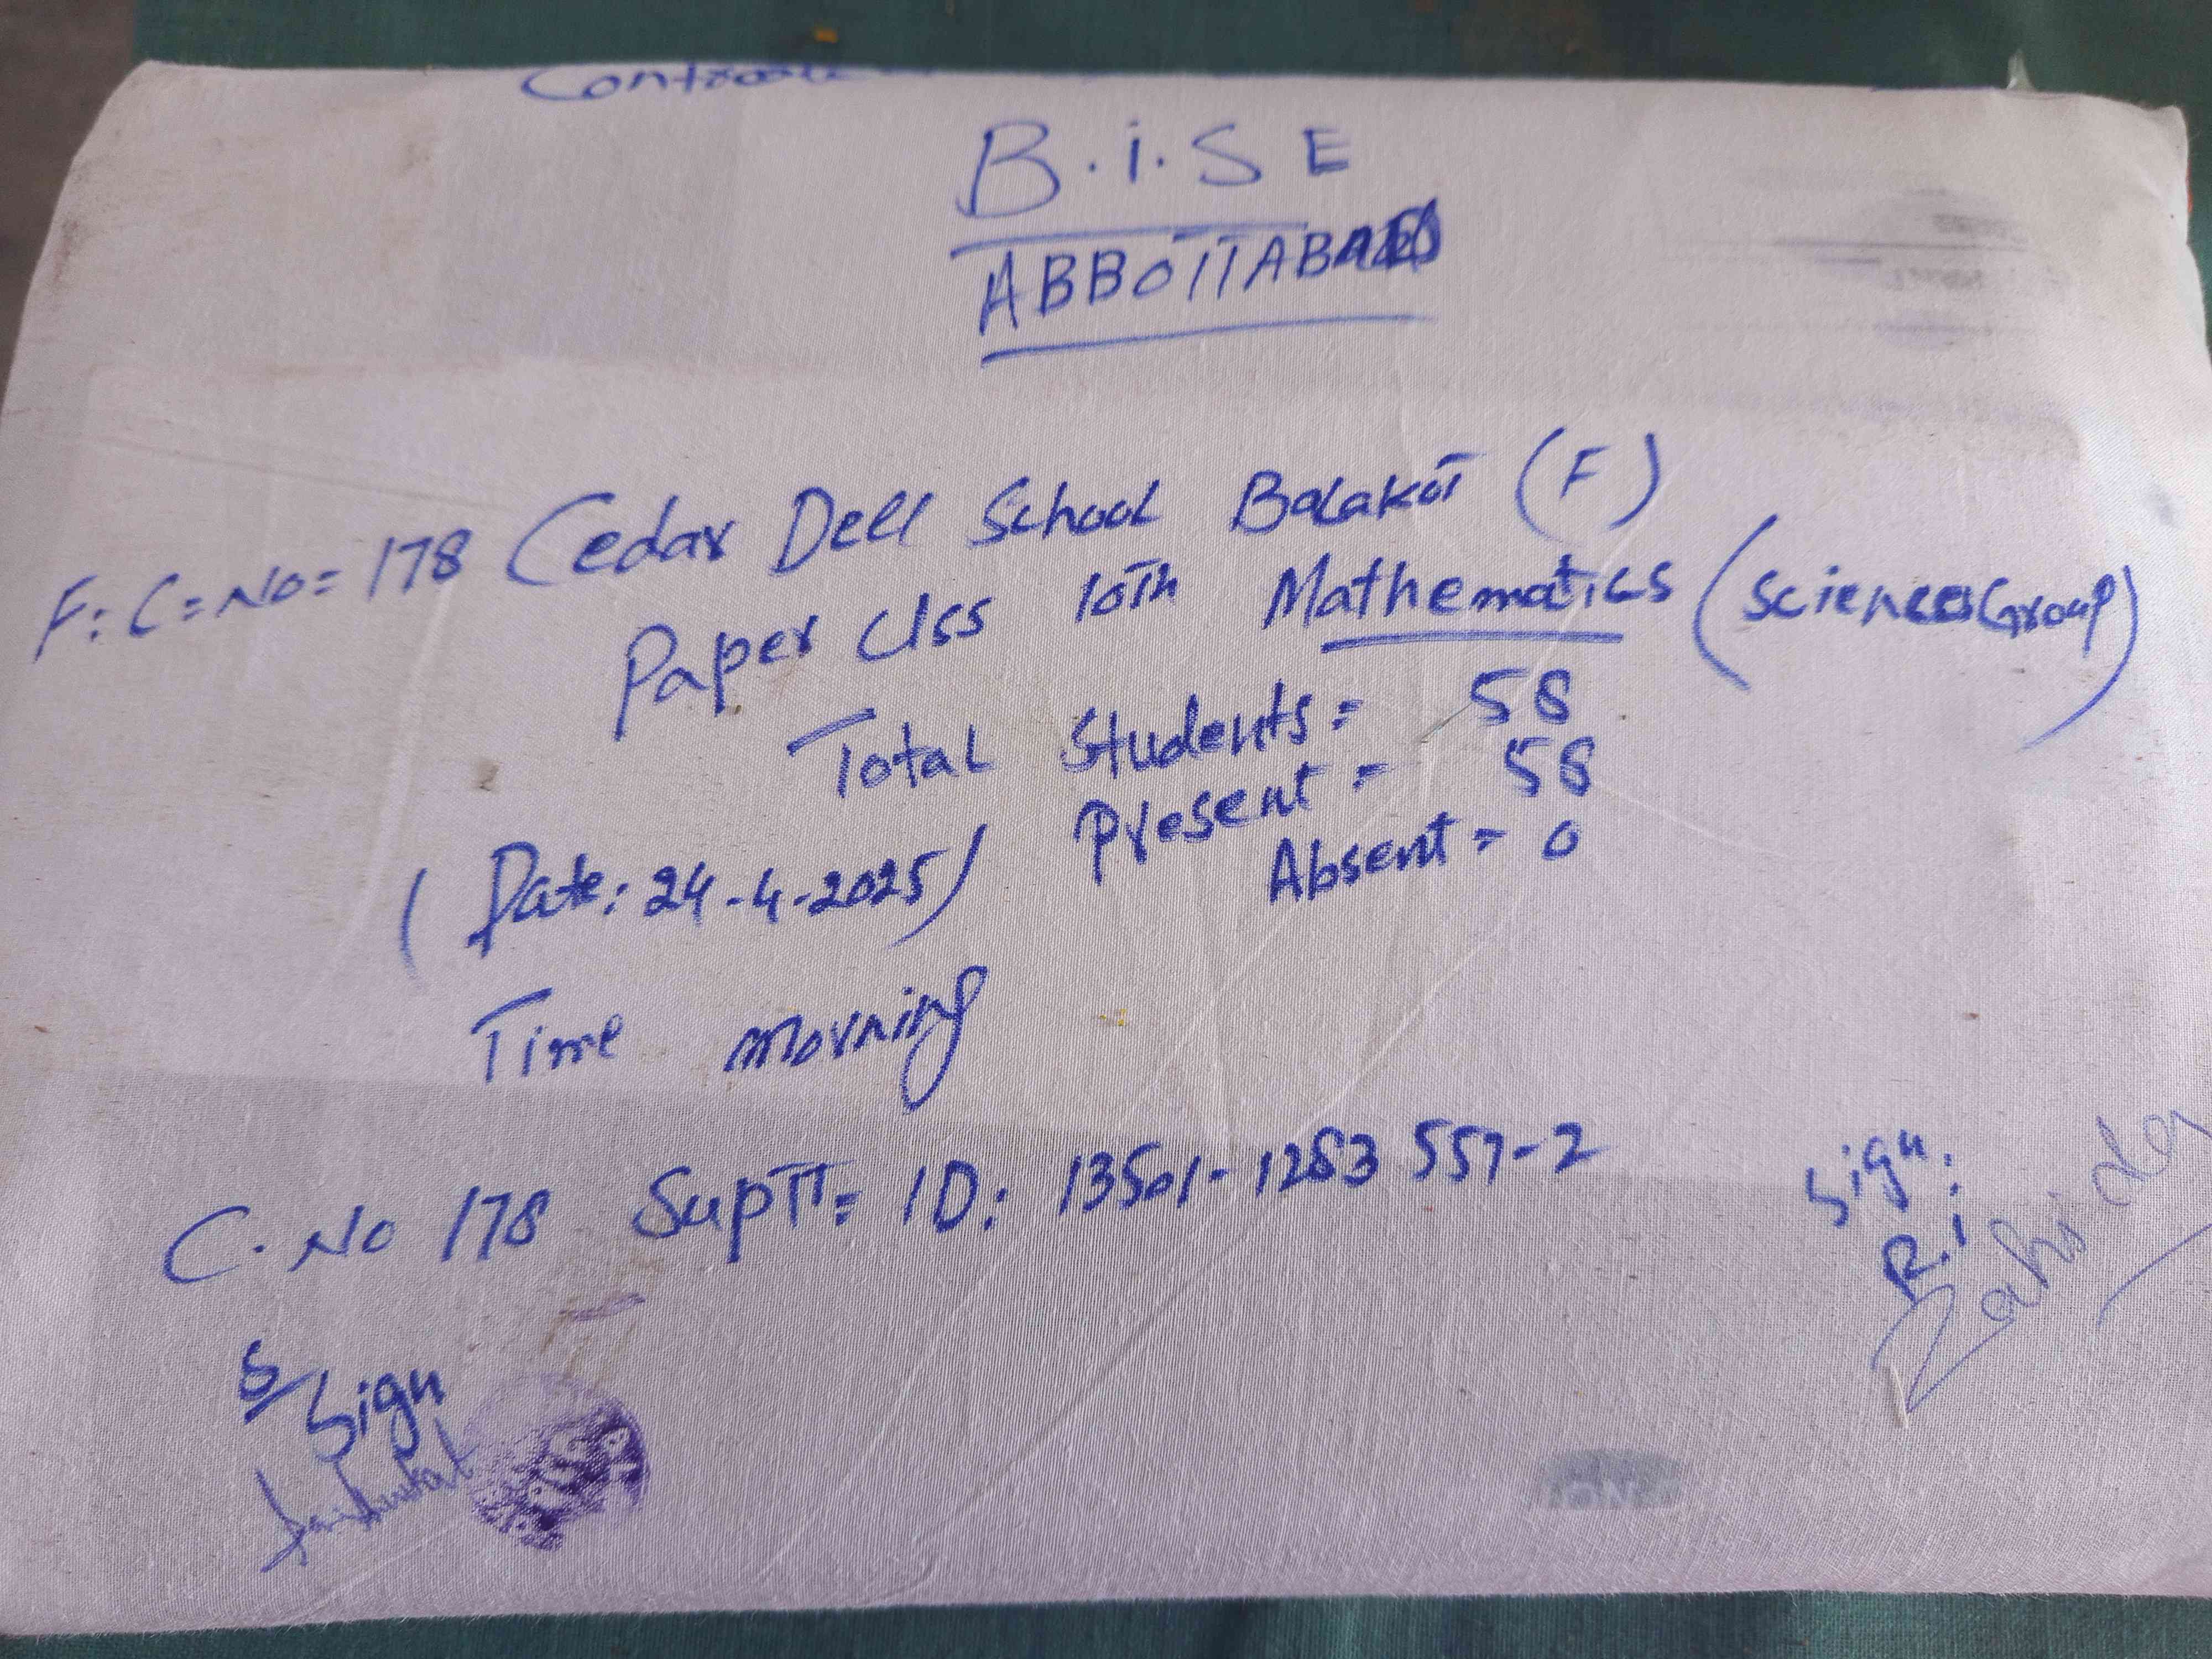 B.i.S E
ABBOTTABAD
F: C = No = 178 Cedar Dell School Balakot (F)
Paper Clss 10th Mathematics (Sciences Group)
Total Students = 58
Present = 58
(Date: 24-4-2025)
Absent = 0
Time morning
C. No 178 Suptt = ID: 13501-1253557-2
Sign:
R.I
Zahida
S/Sign